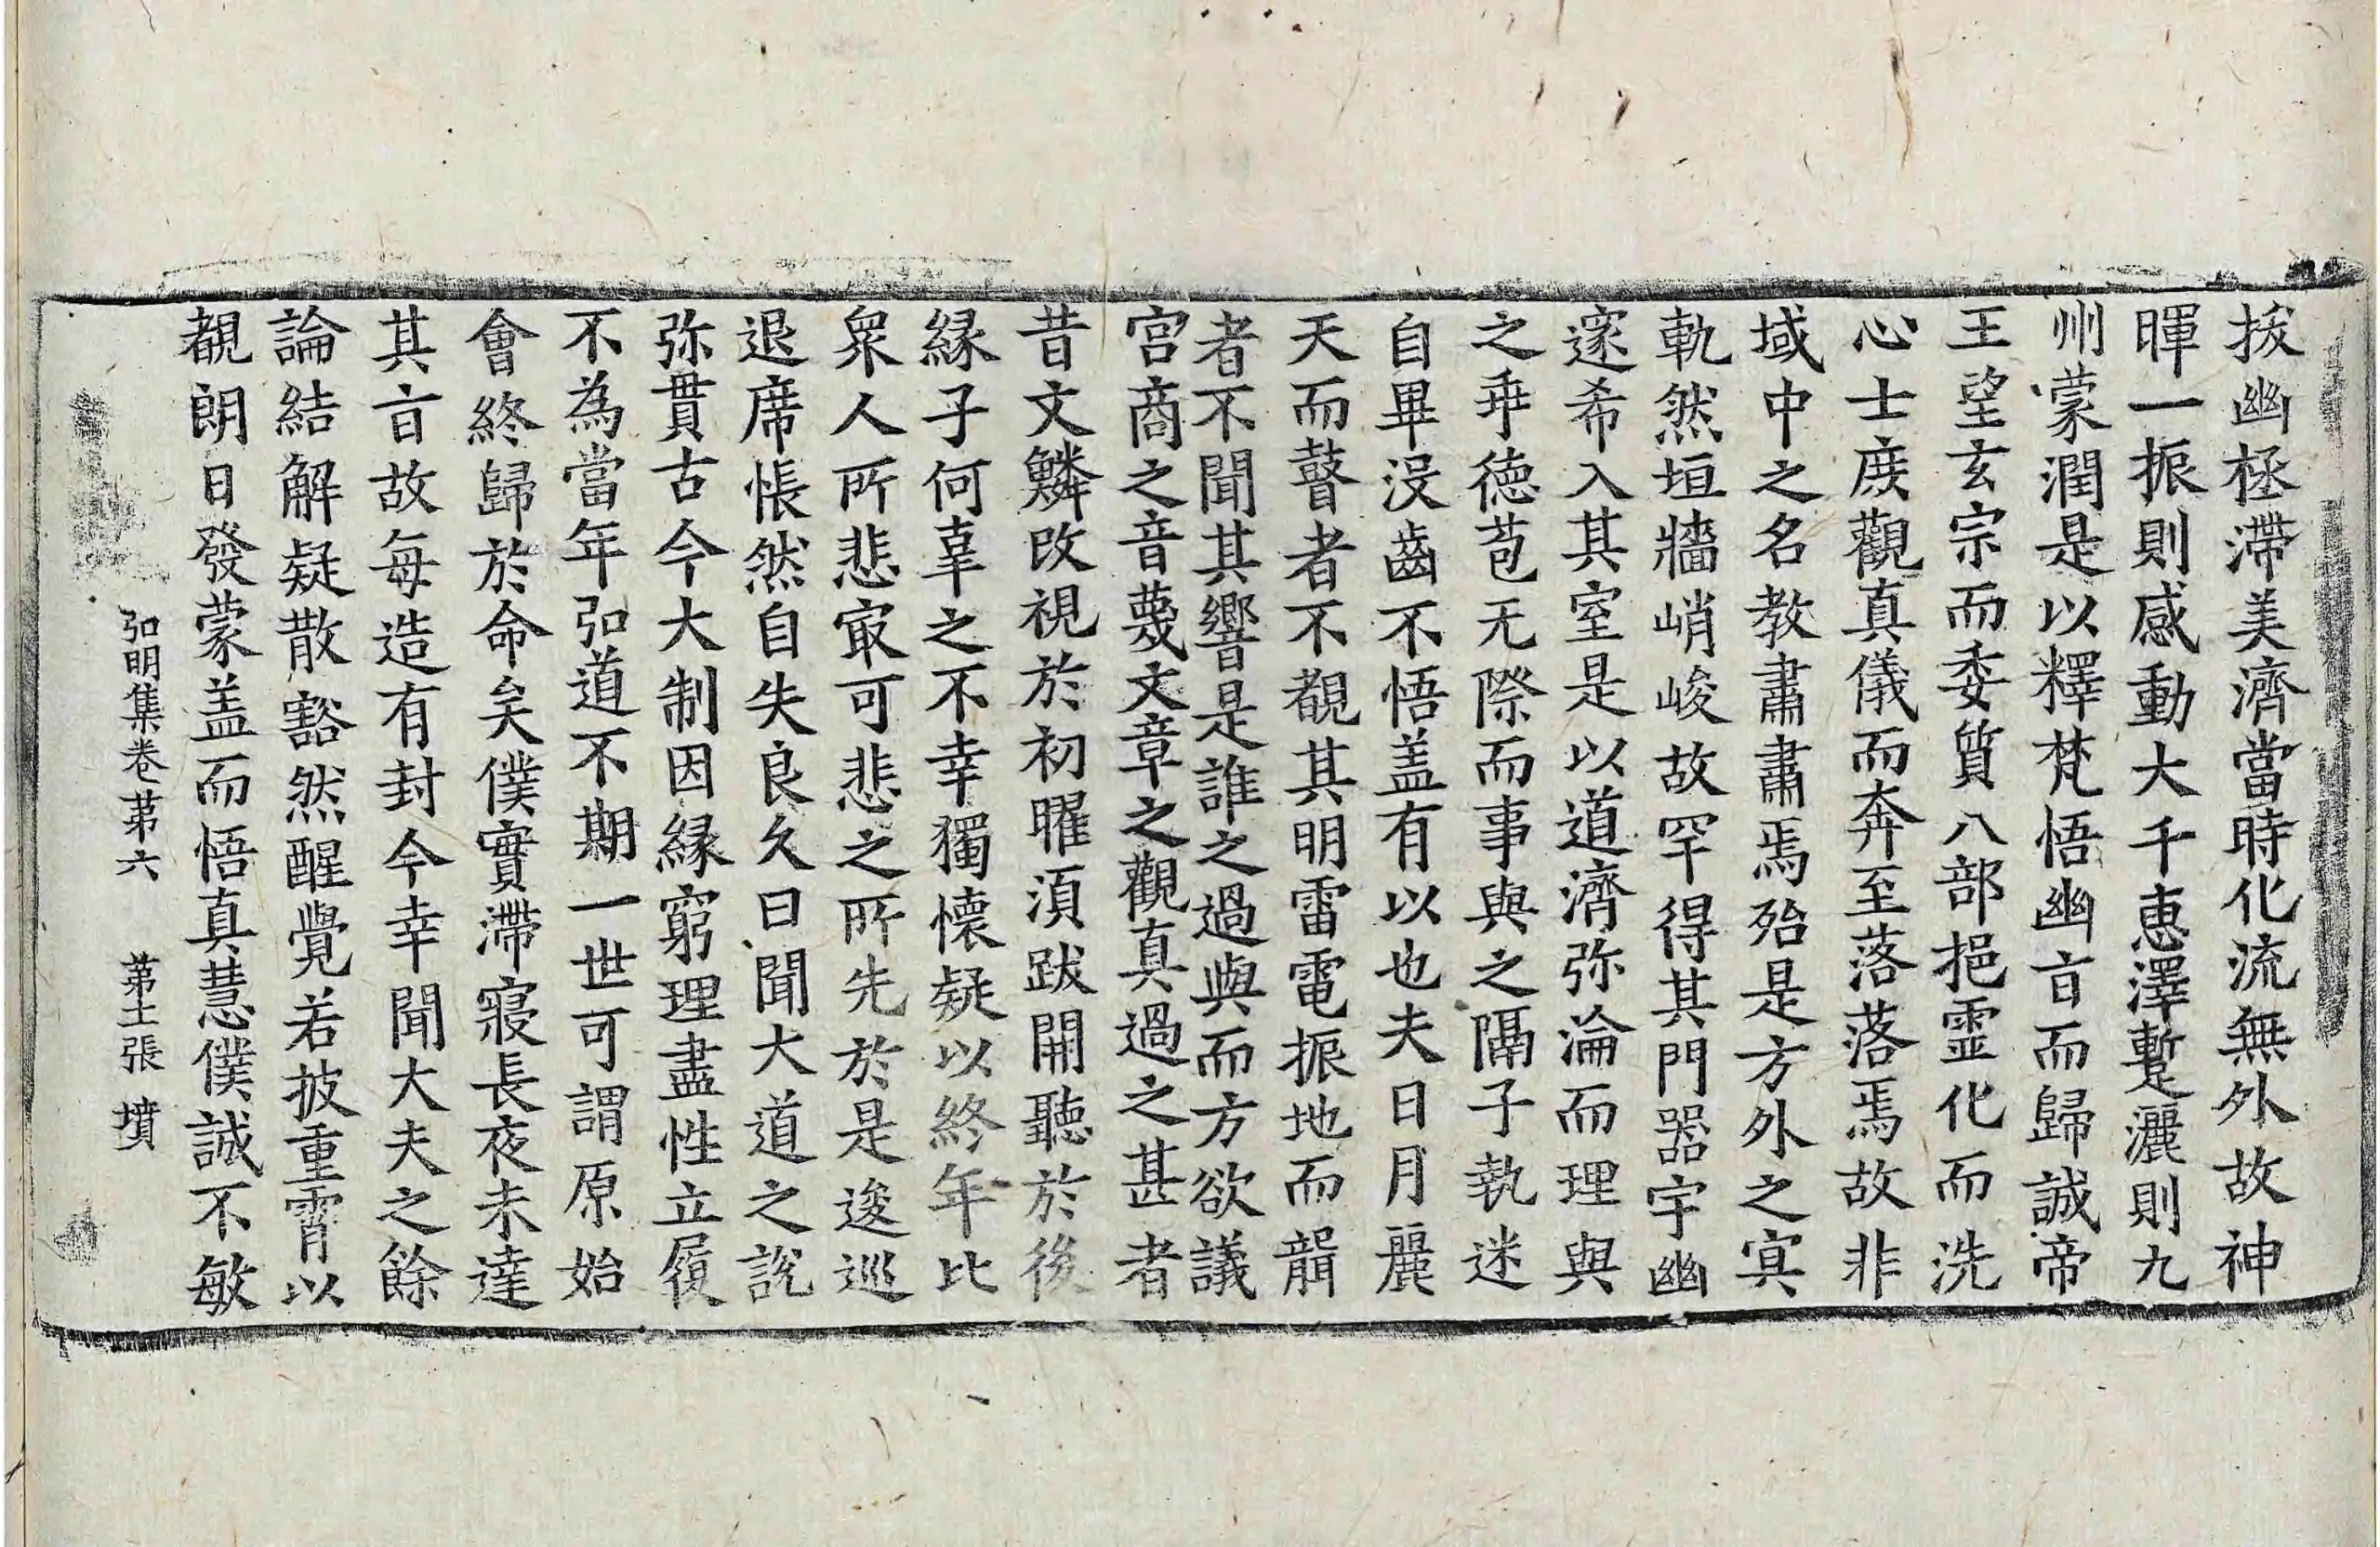 拔幽拯滯美濟當時化流無外故神
暉一振則感動大千惠澤蹔灑則九
州蒙潤是以釋梵悟幽旨而歸誠帝
王望玄宗而委質八部挹靈化而洗
心士庶觀真儀而奔至落落焉故非
域中之名教肅肅焉殆是方外之㝠
軌然垣牆峭峻故罕得其門器宇幽
邃希入其室是以道濟弥淪而理與
之乖德苞无際而事與之隔子執迷
自畢没齒不悟盖有以也夫日月麗
天而瞽者不覩其明雷電振地而聾
者不聞其響是誰之過與而方欲議
宮商之音蔑文章之觀真過之甚者
昔文鱗改視於初曜須跋開聽於後
緣子何辜之不幸獨懷疑以終年比
衆人所悲㝡可悲之所先於是逡巡
退席悵然自失良久曰聞大道之說
弥貫古今大制因緣窮理盡性立履
不為當年弘道不期一世可謂原始
會終歸於命矣僕實滯寢長夜未達
其旨故每造有封今幸聞大夫之餘
論結解疑散豁然醒覺若披重霄以
覩朗日發蒙盖而悟真慧僕誠不敏
弘明集卷苐六　苐土張　墳